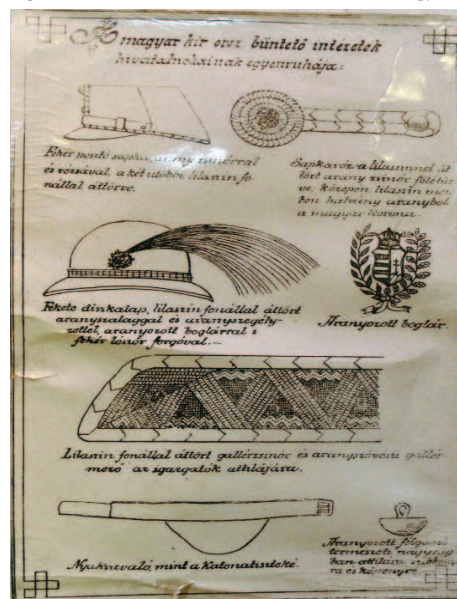 A magyar kir orsz büntető intézetek
hivatalnokainak egyenruhája:
Fehér posztó sapka arany zsinórral
és rozsával, a két utóbbi lilaszin fo-
nállal áttörve.
Sapkaróza a lilaszinnel át
tört arany zsinór fölötte
ve, közepén lilaszin mező
ben halvány aranyból
a magyar korona.
Fekete diszkalap, lilaszin fonállal áttört
aranyszalaggal és aranyszegély-
zettel, aranyozott boglárral s
fehér lószőr forgóval.—
Aranyozott boglár.
Lilaszin fonállal áttört gallérzsinór és aranyszövésű gallér
mező az igazgatók attilájára.
Nyakravaló, mint a Katonatiszteké.
Aranyozott félgömb
természeti nagyság
ban attilára
ra és köpenyre.